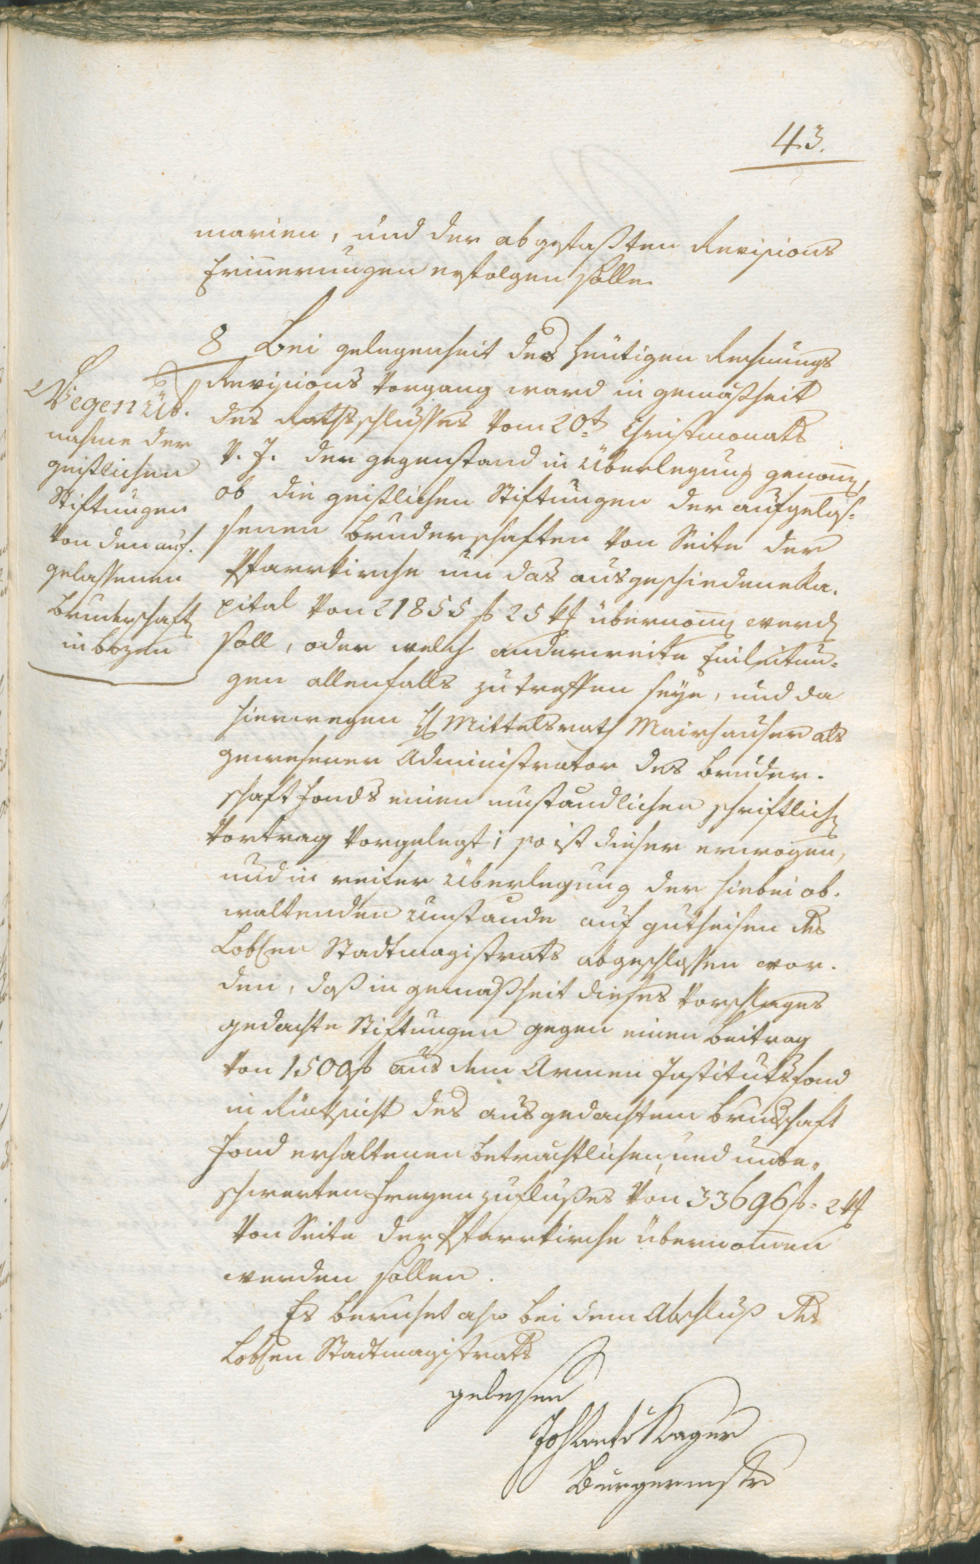 43.
marien, und der abgefaßten Revisions
Erinnerungen erfolgen solle.
8 Bei gelegenheit des heutigen Rechnungs
Revisions Vorgang ward in gemäßheit
des Rathsschlusses vom 20t Christmonats
v. J. der gegenstand in Überlegung genom̅en,
ob die geistlichen Stiftungen der aufgelas-
senen Bruderschaften von Seite der
Pfarrkirche um das ausgeschiedene Ka-
pital von 21855 f 25 xr übernom̅en werden
soll, oder welch anderweite Einleitun-
gen allenfalls zu treffen seye, und da
hierwegen H Mittelsrath Mairhauser als
gewesener Administrator des Bruder-
schaft Fonds einen umständlichen schriftlichen
Vortrag vorgelegt; so ist dieser erwogen,
und in reifer Überlegung der hiebei ob-
waltenden Umstände auf gutheisen des
Lobl.en Stadtmagistrats abgeschlossen wor-
den, daß in gemäßheit dieses Vorschlages
gedachte Stiftungen gegen einen Beitrag
von 1500 f aus dem Armen Institutsfond
in Rücksicht des aus gedachtem Brudschaft
Fond erhaltenen beträchtlichen, und unbe-
schwerten freyen zuflußes von 33696 f. 2 xr
von Seite der Pfarrkirche übernom̅en
werden sollen.
Es beruhet also bei dem Abschluß des
Lobl.en Stadtmagistrats
gelesen
Joh Anto Kager
Burgermstr
Wegen Üb-
nahme der
geistlichen
Stiftungen
von den auf-
gelassenen
Bruderschaften
in bozen